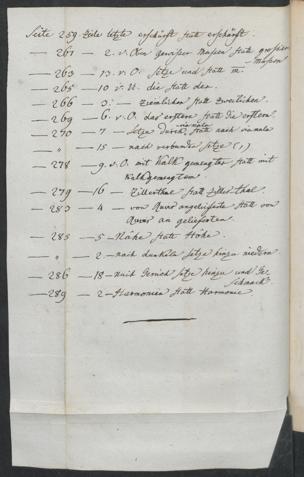 Seite 259 Zeile letzte erschürft statt erschärft.
— 261 — 2. v. Oben gewisser Massen statt gewisser
Massen
— 263 — 13. v. O. setze und statt m.
— 265 — 10 v. U. die statt der.
— 266 — 3. — Ziemlichen statt Zweilichen.
— 269 — 6. v. O. das erstern statt die erstern.
— 270 — 7 — setze durch statt nach niemals
— " — 15 — nach verbunden setze (,)
— 278 — 9. v. O. mit Kalk gemengter statt mit
Kalkgemengtem.
— 279 — 16 — Zillerthal statt Ziller thal.
— 283 — 4 — von angelieferte statt von
an gelieferten.
— 285 — 5 — Nähe statt Höhe.
— " — 2 — nach dunkeln setze hinzu niedern
— 286 — 18 — nach Geruch setze hinzu und Ge
schmack.
— 289 — 2 — Harmonien statt Harmonie